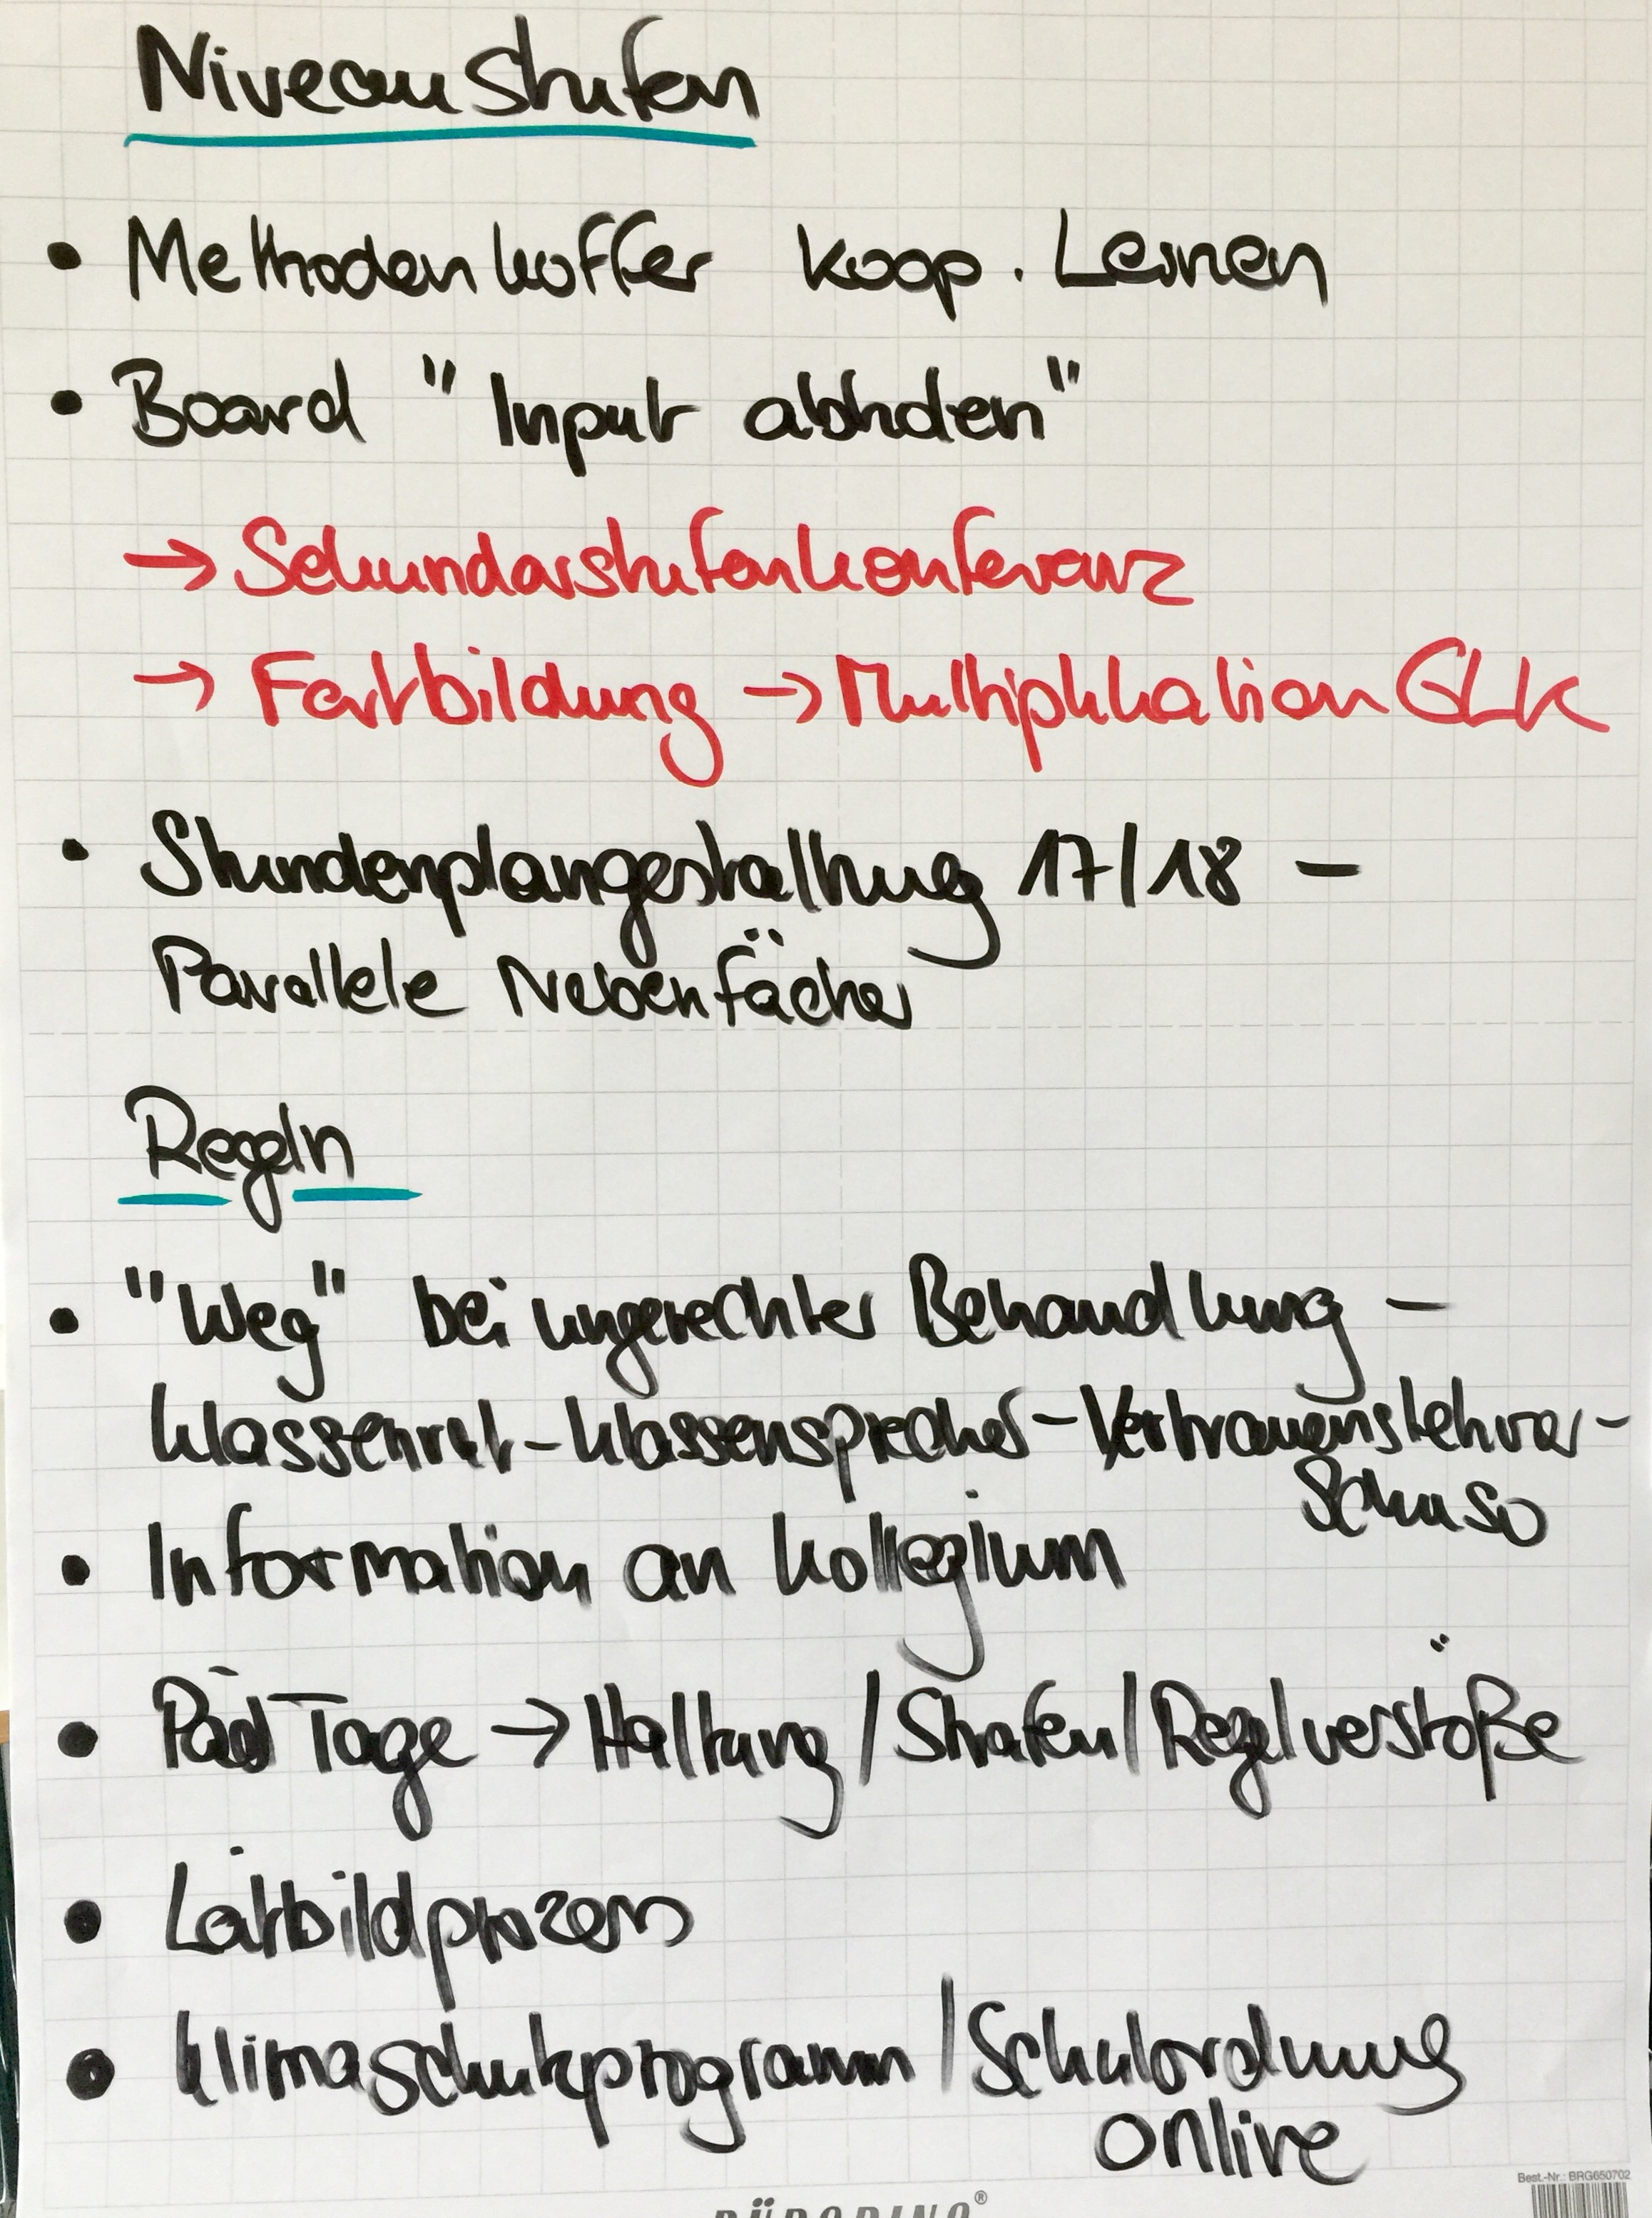 Niveaustufen
• Methodenkoffer koop. Lernen
• Board "Input
→ Sekundarstufenkonferenz
→ Fortbildung → Multiplikation GLK
• Stundenplangestaltung 17/18 –
Parallele Nebenfächer
Regeln
• "Weg" bei ungerechter Behandlung –
Klassenrat – Klassensprecher – Vertrauenslehrer –
Schuso
• Information an Kollegium
• Päd Tage → Haltung / Strafen / Regelverstöße
• Leitbildprozess
• Klimaschutzprogramm / Schulordnung
online
Best.-Nr.: BRG650702